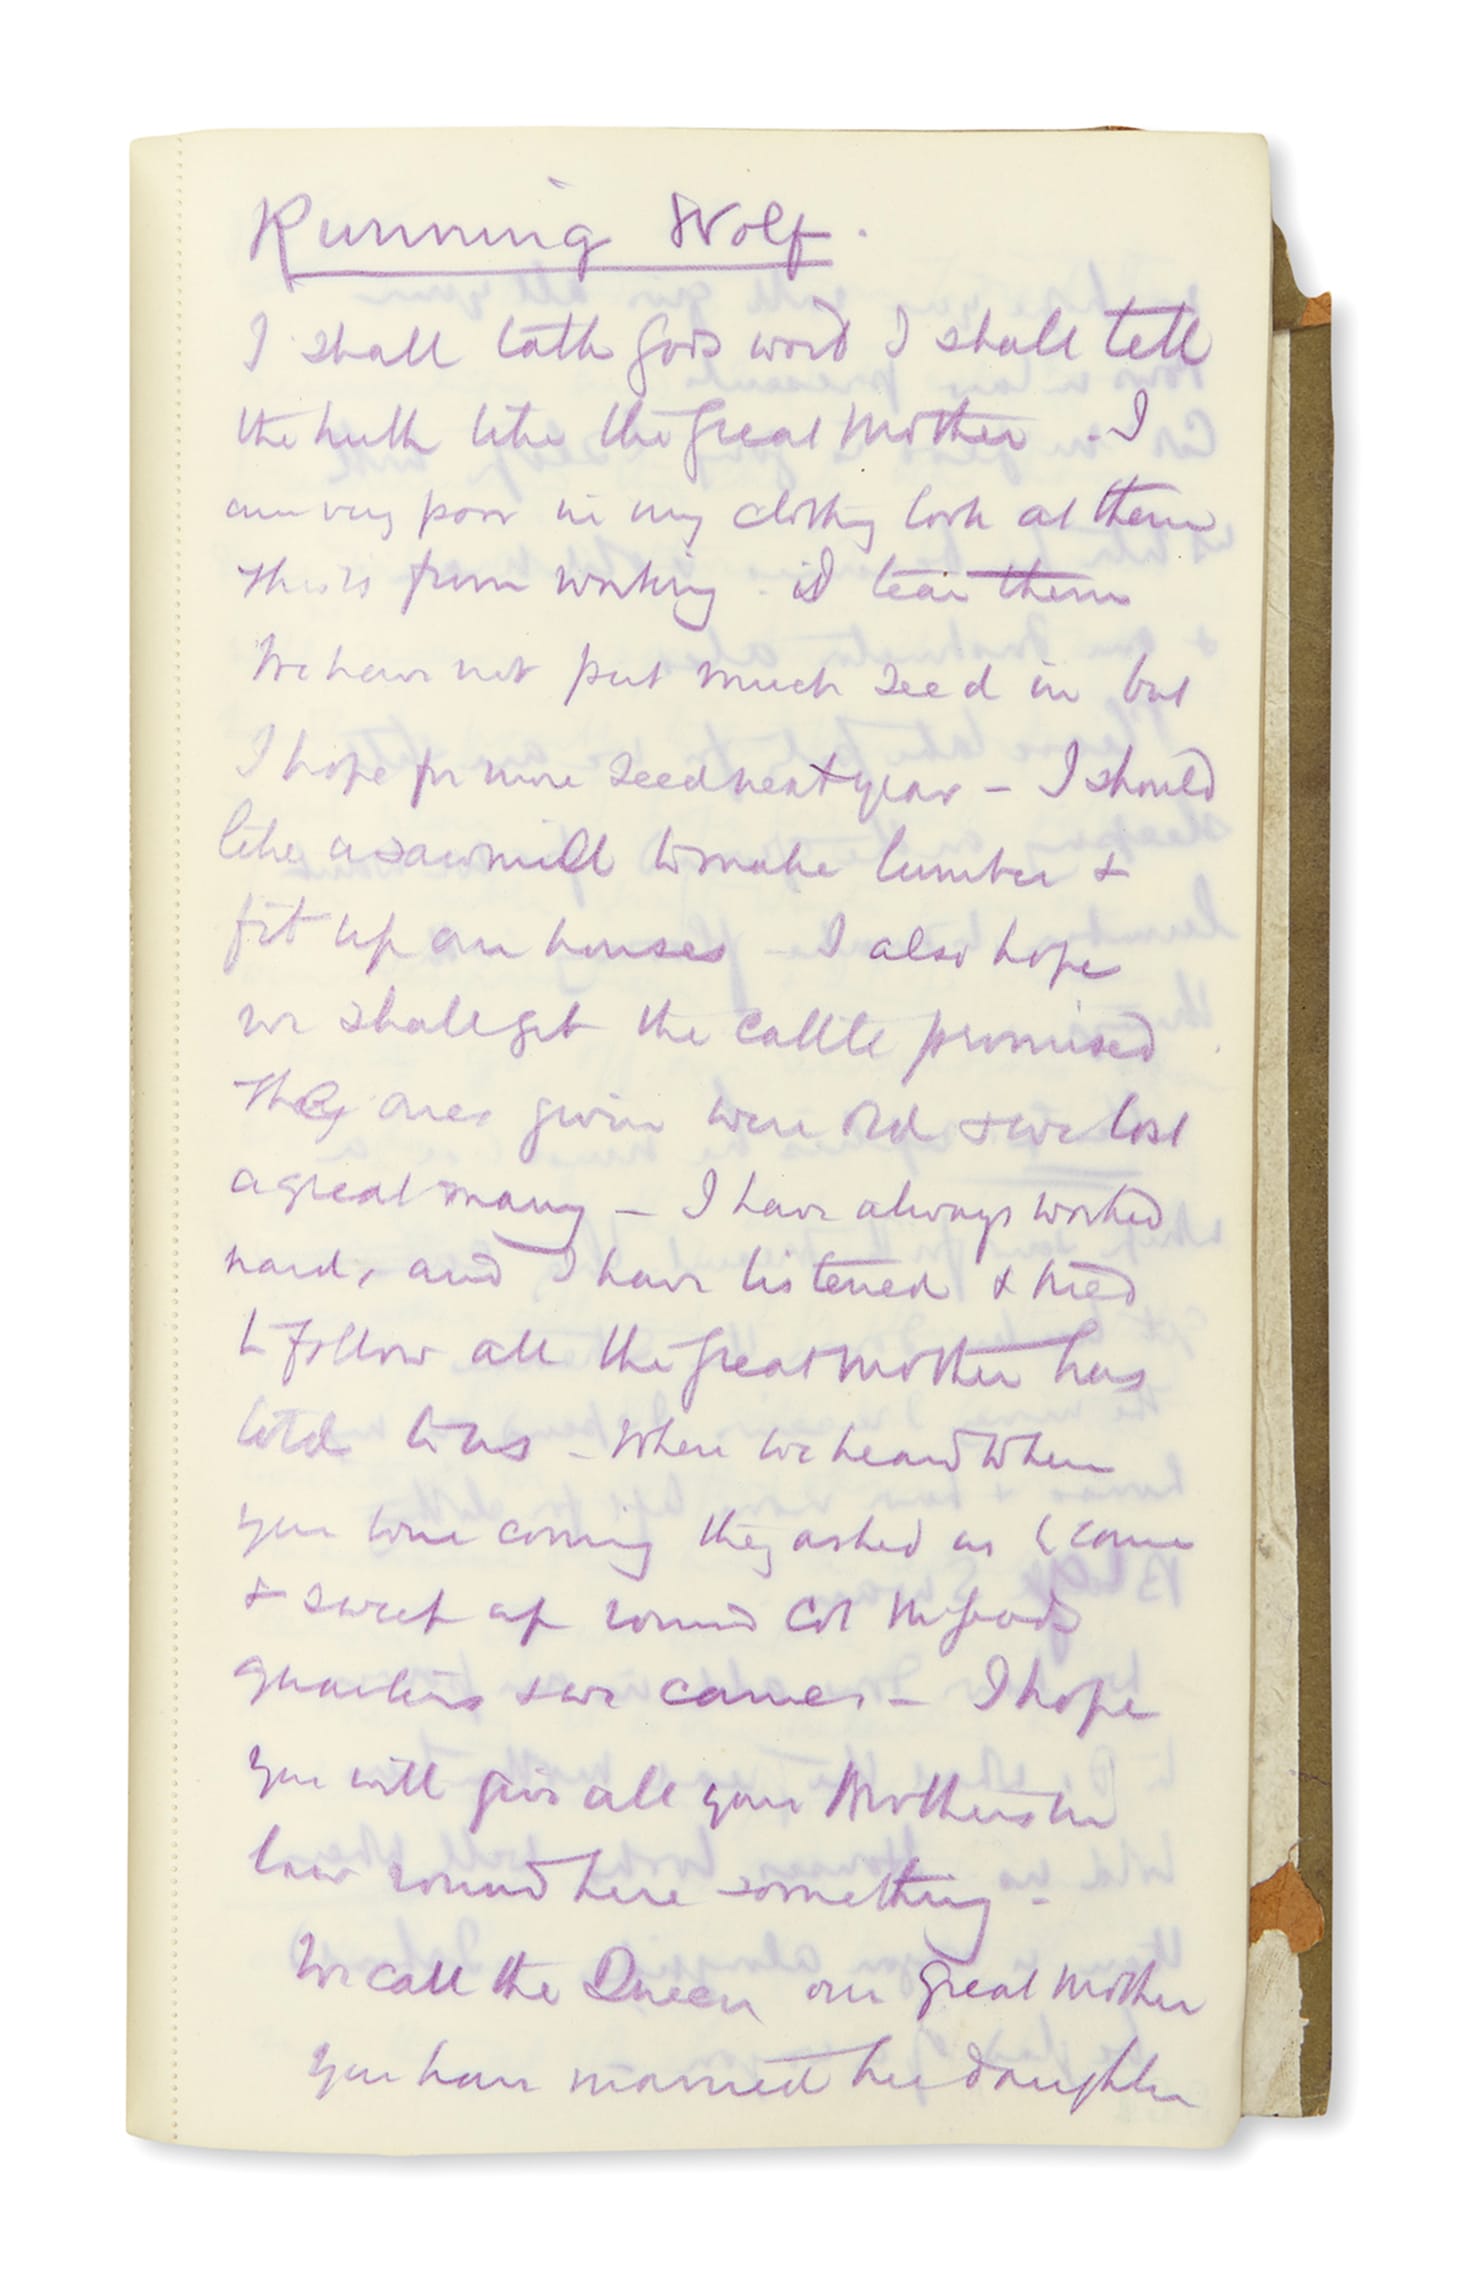 Running Wolf.
I shall talk Gods word I shall tell
the truth like the Great Mother - I
am very poor in my clothing look at them
This is from working. I tear them
We have not put much seed in but
I hope for more seed next year - I should
like a sawmill to make lumber &
fit up our houses - I also hope
we shall get the cattle promised
The ones given were old & we lost
a great many - I have always worked
hard, and I have listened & tried
to follow all the Great Mother has
told to us - When we heard when
you were coming they asked us to come
& up round Col
quarters & we came - I hope
you will give all your Mothers in
law round here something -
We call the Queen our Great Mother
you have married her daughter